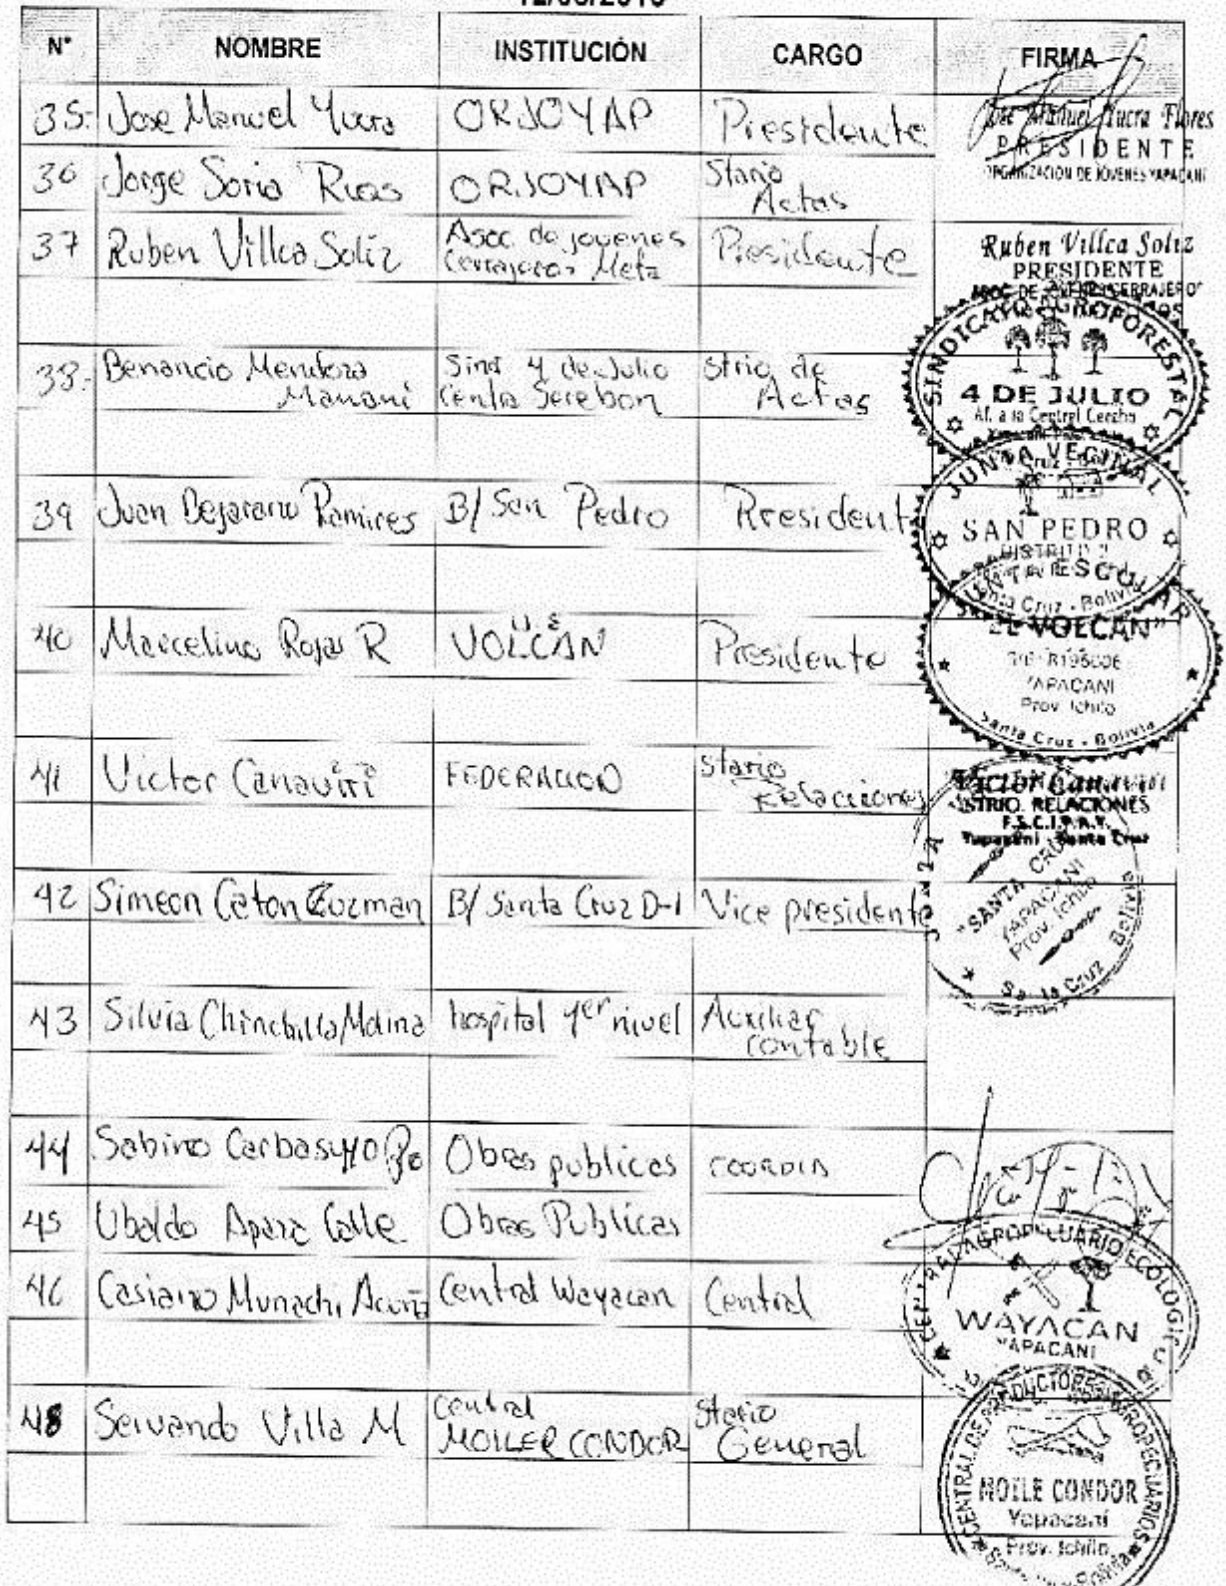 N° NOMBRE INSTITUCIÓN CARGO FIRMA
35.- Jose Manuel Yucra ORJOYAP Presidente
Jose Manuel Yucra Flores
PRESIDENTE
ORGANIZACIÓN DE JOVENES YAPACANI
36 Jorge Soria Rias ORJOYAP Stario
Actas
37 Ruben Villca Soliz Asoc. de jovenes Presidente
Cerrajeros Meta
Ruben Villca Soliz
PRESIDENTE
ASOC. DE JOVENES CERRAJERO
38.- Benancio Mendoza Sind 4 de Julio Strio de
Mamani Centra Serebon Actas
SINDICATO AGROFORESTAL
4 DE JULIO
Af. a la Central
39 Juan Bejarano Ramires B/ San Pedro Presidente
JUNTA VECINAL
SAN PEDRO
DISTRITO 2
Santa Cruz - Bolivia
40 Marcelino Rojas R U.E. Presidente
VOLCAN
JUNTA ESCOLAR
"EL VOLCAN"
YAPACANI
Prov. Ichilo
Santa Cruz - Bolivia
41 Victor Canaviri FEDERACION Stario
Relaciones
Victor Canaviri
STRIO. RELACIONES
Yapacani - Santa Cruz
42 Simeon Caton Guzman B/ Santa Cruz D-1 Vice presidente
JUNTA
"SANTA CRUZ
YAPACANI
Prov. Ichilo
Santa Cruz Bolivia
43 Silvia Chinchilla Molina hospital 1er nivel Auxiliar
contable
44 Sabino Carbasuyo Obras publicas COORDIN
45 Ubaldo Apaza Calle Obras Publicas
46 Casiano Munachi Acuña Central Wayacan Central
CENTRAL AGROPECUARIO ECOLOGICO
WAYACAN
YAPACANI
48 Servando Villa M Central Stario
MOILER CONDOR General
CENTRAL DE PRODUCTORES AGROPECUARIOS
MOILE CONDOR
Yapacani
Prov. Ichilo
Bolivia